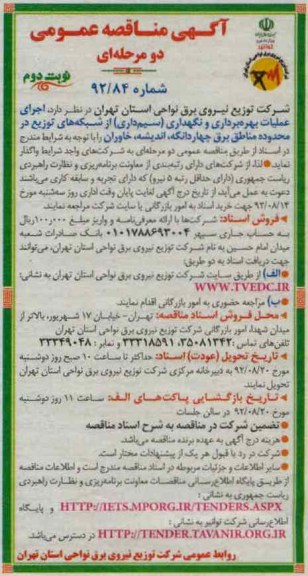 آگهی مناقصه عمومی
دو مرحله‌ای
نوبت دوم
شماره ۹۲/۸۴
شرکت توزیع نیروی برق نواحی استان تهران در نظر دارد، اجرای
عملیات بهره‌برداری و نگهداری (سیم‌بانی) از شبکه‌های توزیع در
محدوده مناطق برق چهاردانگه، اندیشه، خاوران را با توجه به شرایط مندرج
در اسناد از طریق مناقصه عمومی دو مرحله‌ای به شرکت‌های واجد شرایط واگذار
نماید. لذا، از شرکت‌های دارای رتبه‌بندی از معاونت برنامه‌ریزی و نظارت راهبردی
ریاست جمهوری (دارای حداقل رتبه ۵ نیرو) که دارای تجربه و سابقه کاری می‌باشند
دعوت به عمل می‌آید، از تاریخ درج آگهی لغایت پایان وقت اداری روز سه‌شنبه مورخ
۹۲/۰۸/۱۴ جهت خرید اسناد به امور بازرگانی یا سایت شرکت مراجعه نمایند.
فروش اسناد: شرکت‌ها با ارائه معرفی‌نامه و واریز مبلغ ۱۰۰،۰۰۰ریال
به حساب جاری سپهر ۰۱۰۱۷۸۸۶۹۳۰۰۴ بانک صادرات شعبه
میدان امام حسین به نام شرکت توزیع نیروی برق نواحی استان تهران، می‌توانند
جهت دریافت اسناد به دو طریق:
الف) از طریق سایت شرکت توزیع نیروی برق نواحی استان تهران به نشانی:
WWW.TVEDC.IR
ب) مراجعه حضوری به امور بازرگانی اقدام نمایند.
محل فروش اسناد مناقصه: تهران - خیابان ۱۷ شهریور، بالاتر از
میدان شهدا، امور بازرگانی شرکت توزیع نیروی برق نواحی استان تهران
تلفن‌های تماس: ۳۵۰۸۱۳۴۲، ۳۳۳۱۸۵۹۱ و نمابر: ۳۳۳۴۹۰۴۸
تاریخ تحویل (عودت) اسناد: حداکثر تا ساعت ۱۰ صبح روز دوشنبه
مورخ ۹۲/۰۸/۲۰ به دبیرخانه مرکزی شرکت توزیع نیروی برق نواحی استان تهران
تحویل نمایند.
تاریخ بازگشایی پاکت‌های الف: ساعت ۱۱ روز دوشنبه
مورخ ۹۲/۰۸/۲۰ در سالن جلسات
تضمین شرکت در مناقصه به شرح اسناد مناقصه
هزینه درج آگهی به عهده برنده مناقصه می‌باشد.
شرکت در رد یا قبول هر یک از پیشنهادات مختار است.
سایر اطلاعات و جزئیات مربوطه در اسناد مناقصه مندرج است و اطلاعات مناقصه
از طریق پایگاه اطلاع‌رسانی مناقصات معاونت برنامه‌ریزی و نظارت راهبردی
ریاست جمهوری به نشانی:
HTTP://IETS.MPORG.IR/TENDERS.ASPX و پایگاه
اطلاع‌رسانی شرکت توانیر به نشانی:
HTTP://TENDER.TAVANIR.ORG.IR در دسترس می‌باشد.
روابط عمومی شرکت توزیع نیروی برق نواحی استان تهران